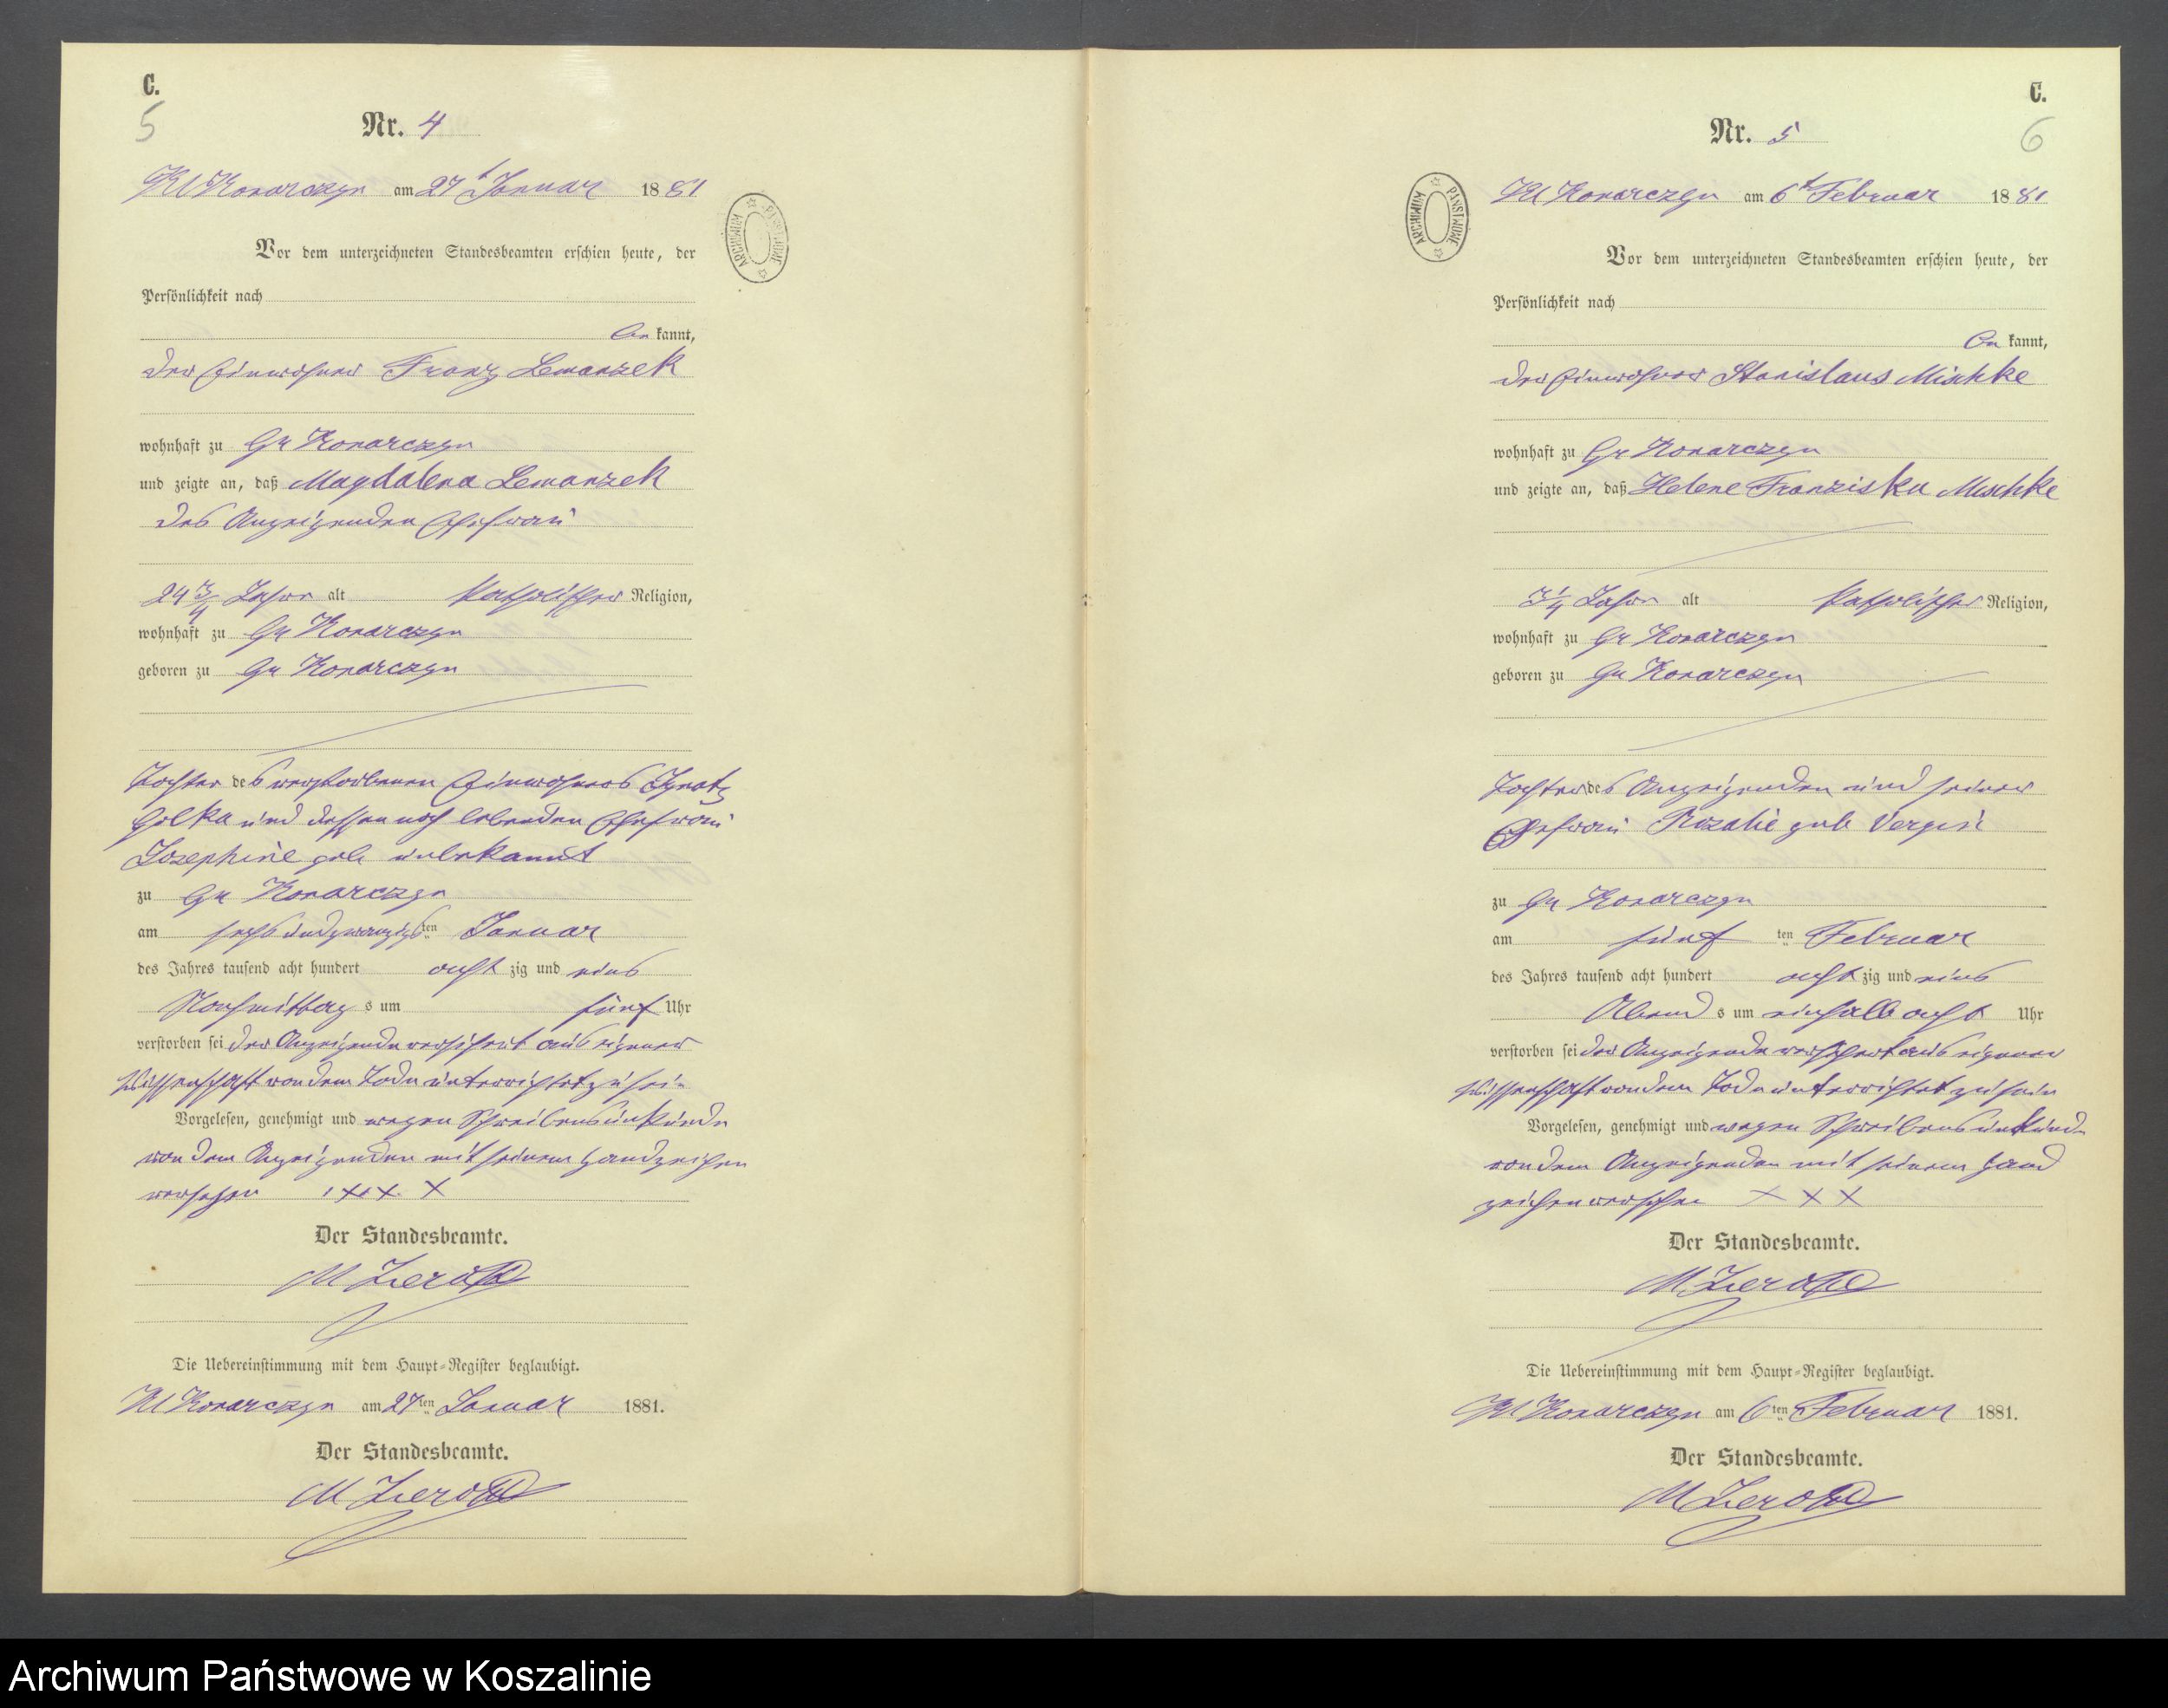 C.
5
Nr. 4
Kl Konarczyn am 27t Januar 1881
ARCHIWUM PAŃSTWOWE
Vor dem unterzeichneten Standesbeamten erschien heute, der
Persönlichkeit nach
be kannt,
der Einwohner Franz Lewanzek
wohnhaft zu Gr Konarczyn
und zeigte an, daß Magdalena Lewanzek
des Anzeigenden Ehefrau
24 3/4 Jahre alt katholischer Religion,
wohnhaft zu Gr Konarczyn
geboren zu Gr Konarczyn
Tochter des verstorbenen Einwohners Ignatz
und dessen noch lebenden Ehefrau
Josephine geb. unbekannt
zu Gr Konarczyn
am sechsundzwanzigsten Januar
des Jahres tausend acht hundert acht zig und eins
Nachmittag s um fünf Uhr
verstorben sei der Anzeigende versichert aus eigener
Wissenschaft von dem Tode unterrichtet zu sein
Vorgelesen, genehmigt und wegen Schreibensunkunde
von dem Anzeigenden mit seinem Handzeichen
versehen xxx X
Der Standesbeamte.
M
Die Uebereinstimmung mit dem Haupt-Register beglaubigt.
Kl Konarczyn am 27ten Januar 1881.
Der Standesbeamte.
M
C.
6
Nr. 5
Kl Konarczyn am 6t Februar 1881
ARCHIWUM PAŃSTWOWE
Vor dem unterzeichneten Standesbeamten erschien heute, der
Persönlichkeit nach
be kannt,
der Einwohner Stanislaus Mischke
wohnhaft zu Gr Konarczyn
und zeigte an, daß Helene Franziska Mischke
3 1/4 Jahre alt katholischer Religion,
wohnhaft zu Gr Konarczyn
geboren zu Gr Konarczyn
Tochter des Anzeigenden und seiner
Ehefrau Rozalie geb
zu Gr Konarczyn
am fünf ten Februar
des Jahres tausend acht hundert acht zig und eins
Abend s um einhalb acht Uhr
verstorben sei der Anzeigende versichert aus eigener
Wissenschaft von dem Tode unterrichtet zu sein
Vorgelesen, genehmigt und wegen Schreibensunkunde
von dem Anzeigenden mit seinem Hand
zeichen versehen X X X
Der Standesbeamte.
M
Die Uebereinstimmung mit dem Haupt-Register beglaubigt.
Kl Konarczyn am 6ten Februar 1881.
Der Standesbeamte.
M
Archiwum Państwowe w Koszalinie